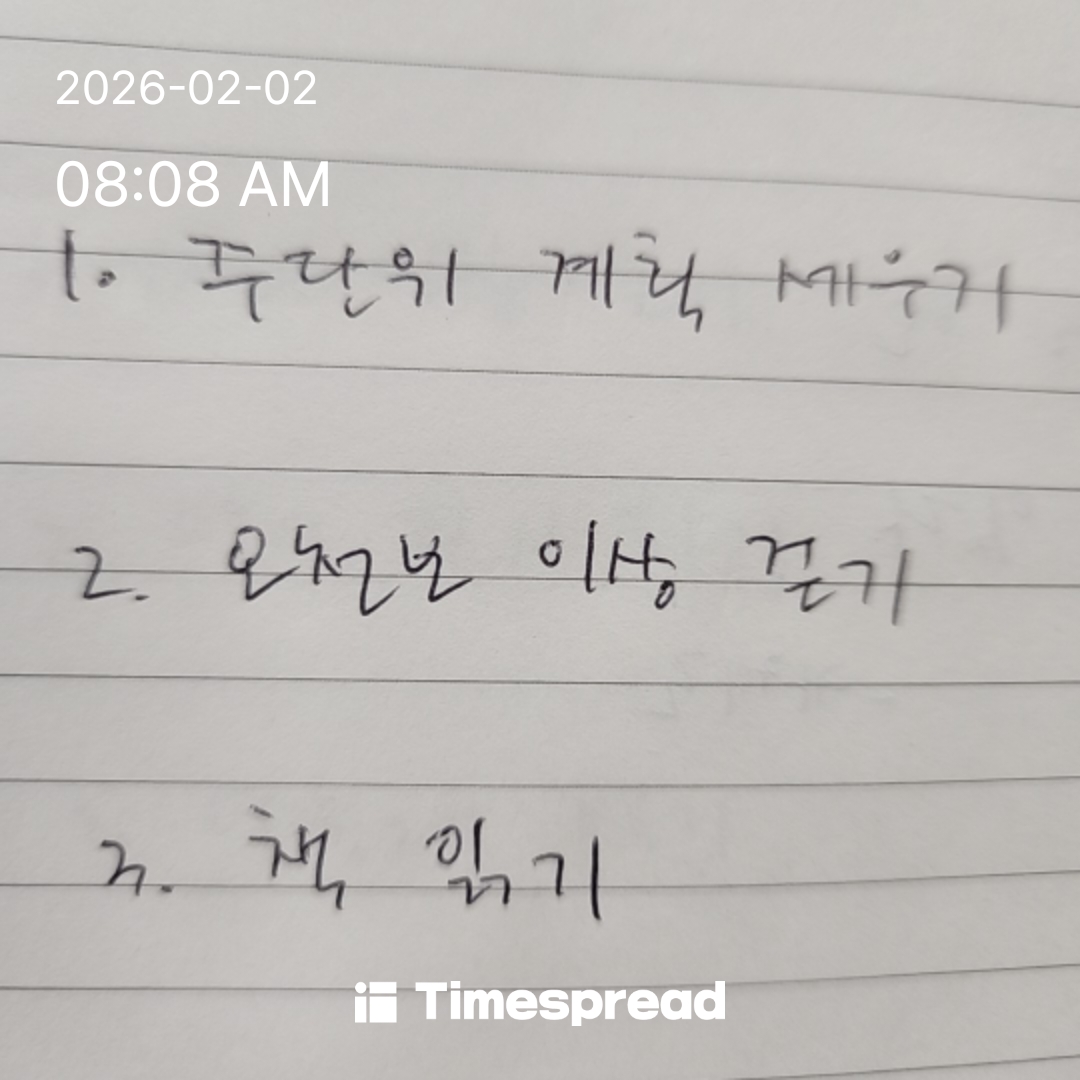 2026-02-02
08:08 AM
1. 주단위 계획 세우기
2. 오천보 이상 걷기
3. 책 읽기
Timespread